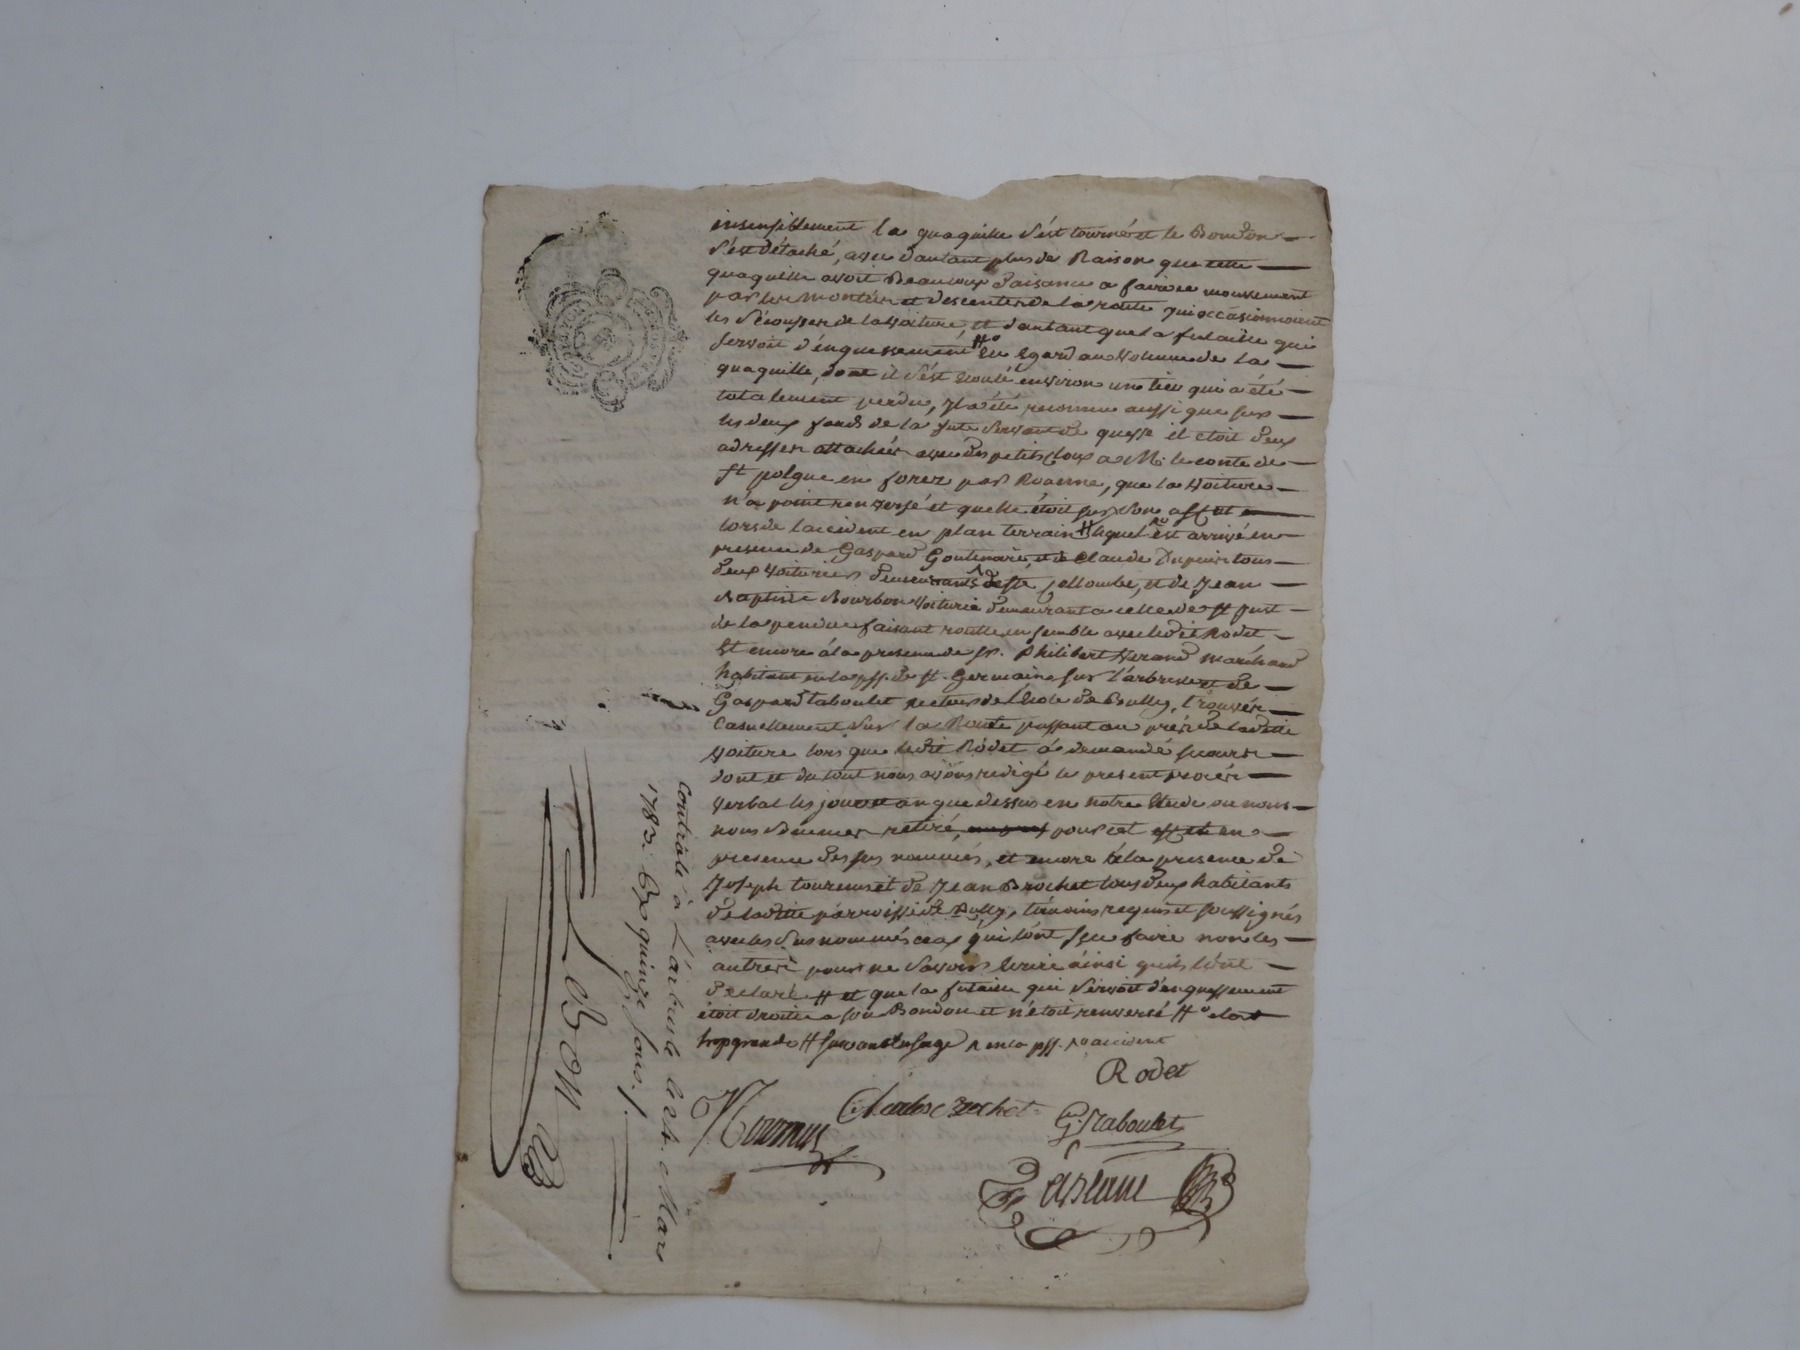 insensiblement la quaquille s'est tourné et le Bondon
s'est détaché, avec d'autant plus de Raison que cette
quaquille avoit Beaucoup d'aisance a faire ce mouvement
par les montées et descentes de la routte qui occasionnoient
les sécousses de la voiture, et d'autant que la futaille qui
servoit d'enquessement # eu Egard au volume de la
quaquille, dont il s'est écoulé environ un tier qui a été
totalement perdu, il a été reconnu aussi que sur
les deux fonds de la fute servant de quesse il etoit deux
adresses attachées avec des petits cloux a M. le conte de
st polgue en forez par Roanne, que la voiture
n'a point renversé et quelle étoit sur son
lors de l'accident en plan terrain # lequel est arrivé en
presence de Gaspard Goutenoire, et de Claude Dupuis tous
deux voituriers demeurants de ste Collombe, et de Jean
Baptiste Bourbon voiturié demeurant a celle de st just
de la pendue faisant routte ensemble avec ledit Rodet
Et encore á la presence de sr. Philibert Verand marchand
habitant en la pss. de st. Germain sur l'arbresle et de
Gaspard taboulet recteur de l'école de Bully, trouvés
Casuellement sur la Route passant au près de ladite
voiture lors que ledit Rodet a demandé secours
dont et du tout nous avons redigé le present procés
verbal les jour et an que dessus en notre Etude ou nous
nous sommes retiré, pour cet effet en
presence des sus nommés, et encore à la presence de
Joseph tournus et de Jean Brochet tous deux habitants
de ladite parroisse de Bully, témoins requis et soussignés
avec les sus nommés ceux qui l'ont sçu faire non les
autres pour ne savoir écrire ainsi qu'ils l'ont
declaré # et que la futaille qui servoit d'enquessement
étoit droitte a son Bondon et n'étoit renversé #
trop grande # suivant l'usage en la pss. accident
Rodet
Brochet
Tournus
G. Taboulet
Contrôlé à L'arbresle le 24. Mars
1783. Rç quinze sous.